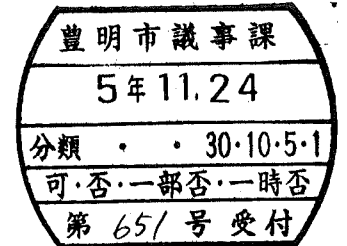 豊明市議事課
5年11.24
分類 ・ ・ 30・10・5・1
可・否・一部否・一時否
第 651 号 受付